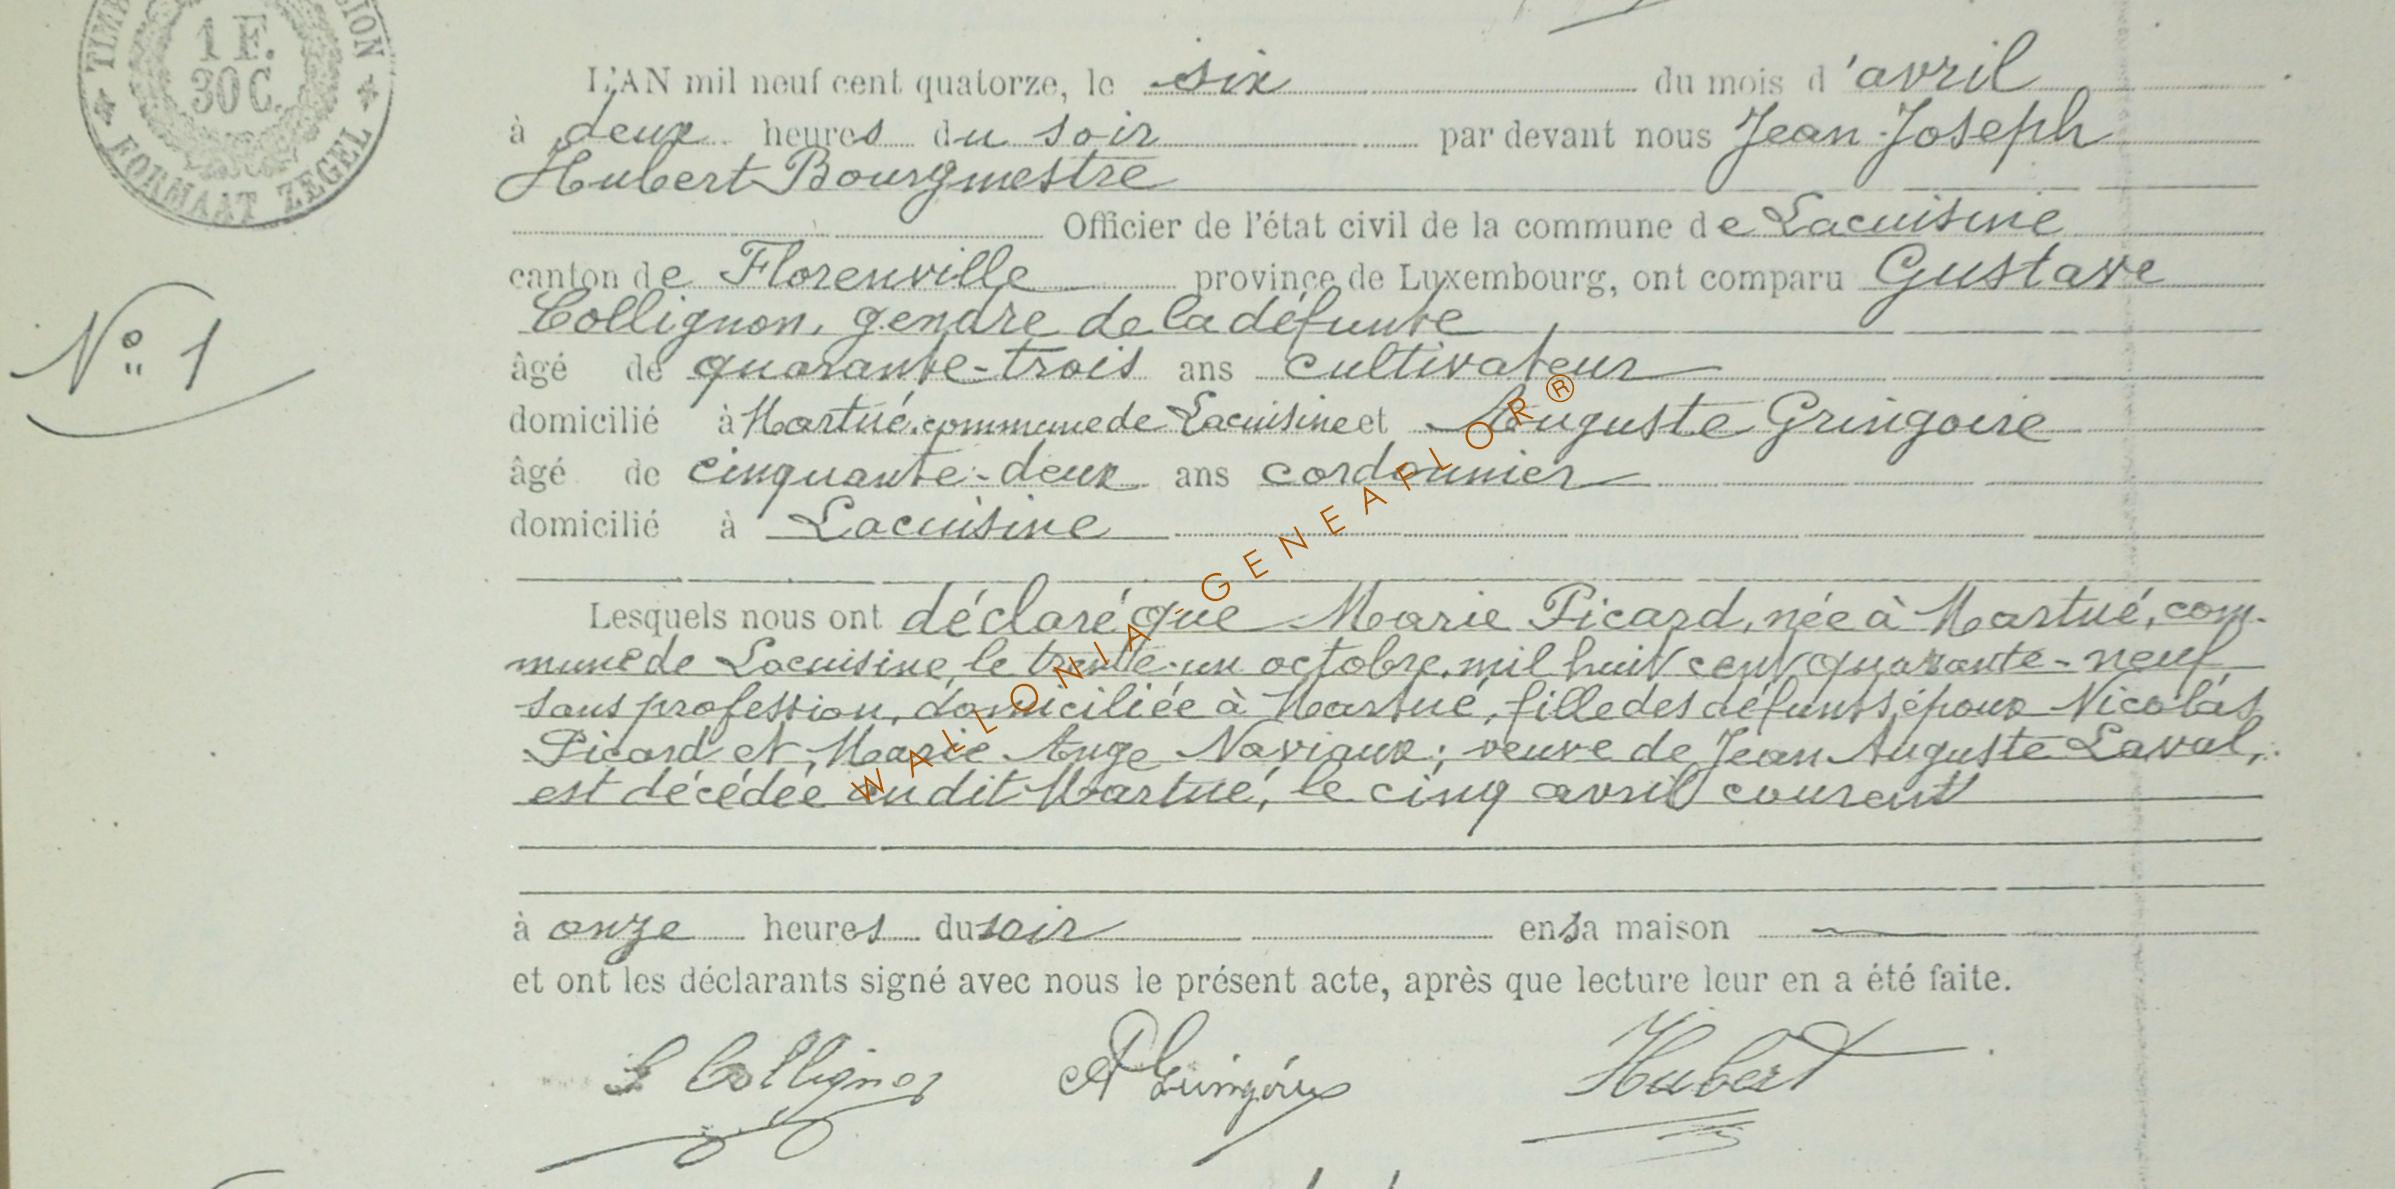 1 F.
30 C.
FORMAAT ZEGEL
L'AN mil neuf cent quatorze, le six du mois d'avril
à deux heures du soir par devant nous Jean-Joseph
Hubert Bourgmestre
Officier de l'état civil de la commune de Lacuisine
canton de Florenville province de Luxembourg, ont comparu Gustave
Collignon, gendre de la défunte
N° 1
âgé de quarante-trois ans cultivateur
domicilié à Martué, commune de Lacuisine et Auguste Gringoire
âgé de cinquante-deux ans cordonnier
domicilié à Lacuisine
Lesquels nous ont déclaré que Marie Picard, née à Martué, com-
mune de Lacuisine, le trente-un octobre, mil huit cent quarante-neuf
sans profession, domiciliée à Martué, fille des défunts époux Nicolas
Picard et Marie Ange Naviaux; veuve de Jean Auguste Laval,
est décédée au dit Martué, le cinq avril courant
à onze heures du soir en sa maison
et ont les déclarants signé avec nous le présent acte, après que lecture leur en a été faite.
Collignon Hubert
WALLONIA - GENEAFLOR®